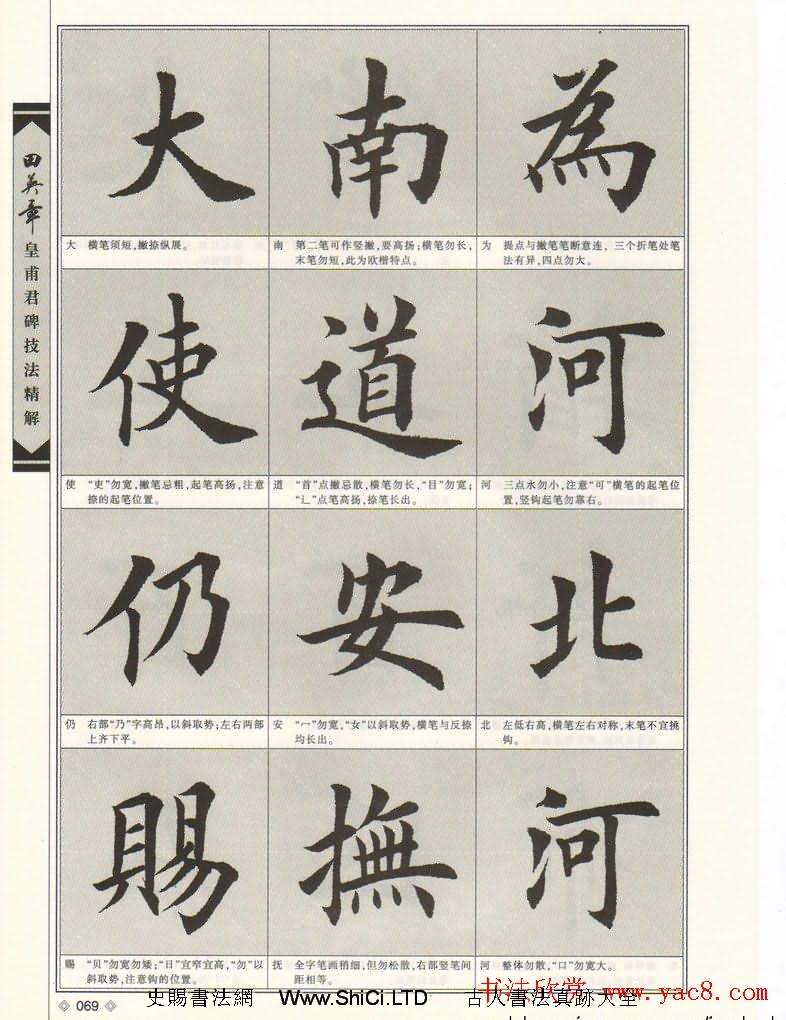 田英章
皇甫君碑技法精解
大
南
為
大 横笔须短,撇捺纵展。
南 第二笔可作竖撇,要高扬;横笔勿长,
末笔勿短,此为欧楷特点。
为 提点与撇笔笔断意连,三个折笔处笔
法有异,四点勿大。
使
道
河
使 “吏”勿宽,撇笔忌粗,起笔高扬,注意
捺的起笔位置。
道 “首”点撇忌散,横笔勿长,“目”勿宽;
“辶”点笔高扬,捺笔长出。
河 三点水勿小,注意“可”横笔的起笔位
置,竖钩起笔勿靠右。
仍
安
北
仍 右部“乃”字高昂,以斜取势;左右两部
上齐下平。
安 “宀”勿宽,“女”以斜取势,横笔与反捺
均长出。
北 左低右高,横笔左右对称,末笔不宜挑
钩。
賜
撫
河
赐 “贝”勿宽勿矮;“日”宜窄宜高,“勿”以
斜取势,注意钩的位置。
抚 全字笔画稍细,但勿松散,右部竖笔间
距相等。
河 整体勿散,“口”勿宽大。
069
史賜書法網 Www.ShiCi.LTD 古人書法真跡大全
书法欣赏 www.yac8.com